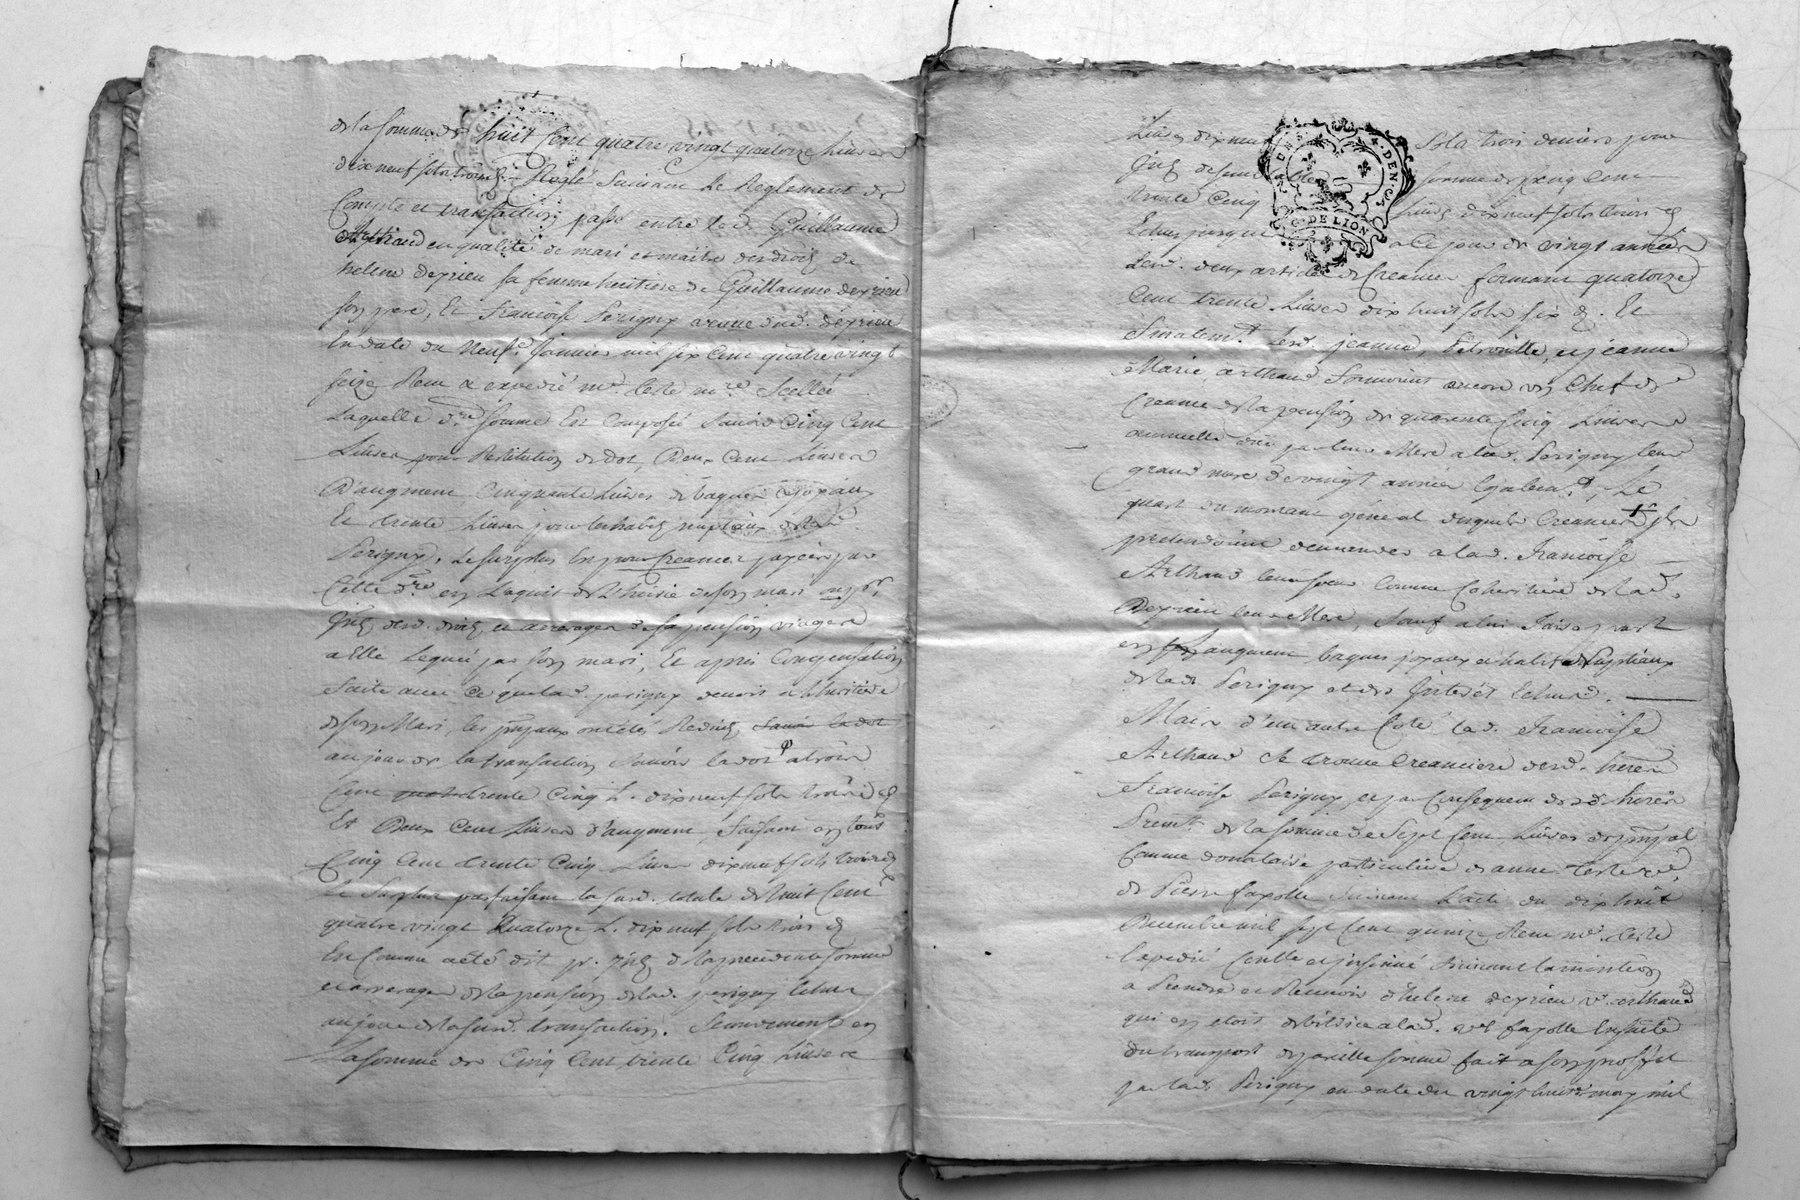 de la somme de huit Cent quatre vingt quatorze Livres
dix neuf sols trois d. Reglé suivant Le Reglement de
Compte et transaction passé entre led. Guillaume
Arthaud en qualité de mari et maître des droits de
helene deyrieu sa femme heritiere de Guillaume deyrieu
son pere, Et francoise Perigny veuve dud. deyrieu
En date du Neufe. Janvier mil six Cent quatre vingt
seize Reçu & expedié me. Coste nre. Scellée
Laquelle dre. somme Est Composé scavoir Cinq Cent
Livres pour Restitution de dot, Deux Cent Livres
D'augment Cinquante Livres de bagues et joyaux
Et trente Livres pour les habits nuptiaux de lad.
Perigny, Le surplus En pour Creances payées par
Cette dre. en L'aquit de L'hoirie de son mari
Jnts. desd. droits, et arrerages de sa pension viagere
a Elle Leguée par son mari, Et après Compensation
faite avec Ce que lad. perigny devoit a L'heritiere
de son Mari, les prncipaux ont étés Reduits, scavoir la dot
au jour de la transaction scavoir la dot a trois
Cent quatre trente Cinq L. dix neuf sols trois d.
Et Deux Cent Livres d'augment, faisant en tout
Cinq Cent trente Cinq Livres dix neuf sols trois d.
Le surplus parfaisant la susd. totale de huit Cent
quatre vingt Quatorze L. dix neuf sols trois d.
Est Comme a été dit pr. Jnts. de la precedente somme
et arrerages de la pension de lad. perigny Echus
au jour de la susd. transaction. Secondement en
La somme de Cinq Cent trente Cinq Livres
Livres dix neuf sols trois deniers pour
Jnts. de semblable somme de Cinq Cent
trente Cinq Livres dix neuf sols trois d
Echus jusques a Ce jour de vingt années
Lesd. deux articles de Creances formant quatorze
Cent trente Livres dix huit sols six d. Et
finalemt. Lesd. jeanne, Petronille, et jeanne
Marie arthaud formoient encore un Chef de
Creance de la pension de quarante Cinq Livres
annuelle due par leur Mere a lad. Perigny leur
grand mere de vingt années Le
quart du montant géneral desquelles Creances elles
pretendoient demander a lad. francoise
Arthaud leur soeur Comme Coheritiere de lad.
Deyrieu leur Mere, sauf a lui faire part
en son augment bagues joyaux et habits Nuptiaux
de lad. Perigny et des Jnterêts Echus.
Mais d'un autre Coté lad. francoise
Arthaud se trouve Creanciere desd. hoirs
francoise Perigny et par Consequent desd. hoirs
Premt. de la somme de Sept Cent Livres de prncipal
Comme donataire particuliere de anne Coste ve.
de Pierre fayolle suivant L'acte du dix huit
Decembre mil sept Cent quinze Reçu me. Coste
Expedié Controllé et jnsinué
a Prendre et Recevoir d'helene deyrieu ve. arthaud
qui en etoit debitrice a lad. ve. fayolle Ensuite
du transport de pareille somme fait a son proffit
par lad. Perigny en date du vingt huit may mil
DE LION